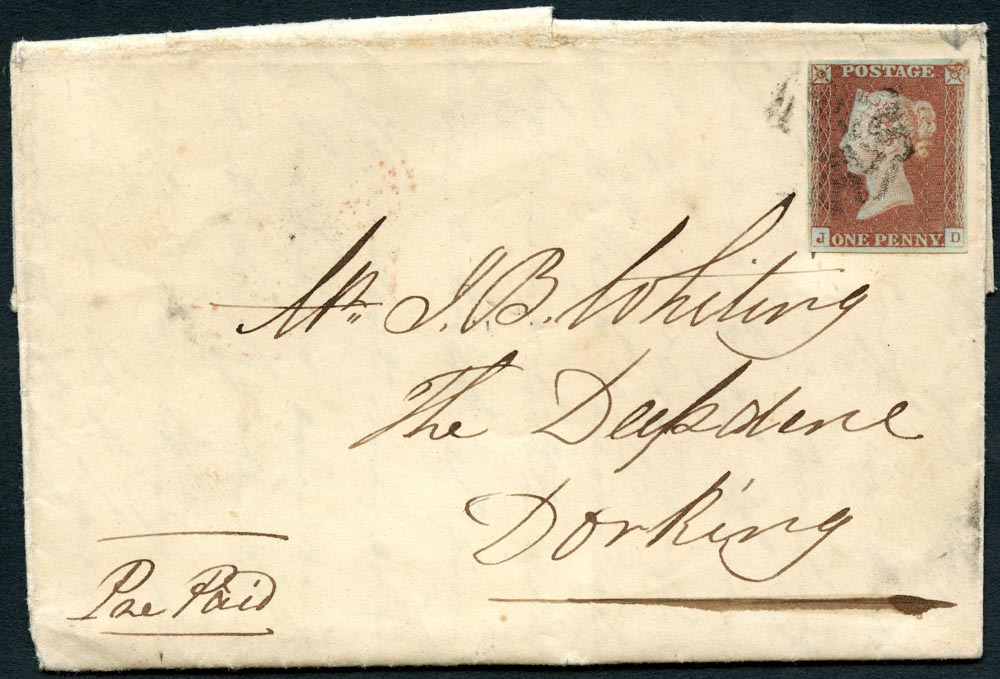 POSTAGE
J ONE PENNY D
Mr. J. B. Whiting
The Deepdene
Dorking
Pre Paid